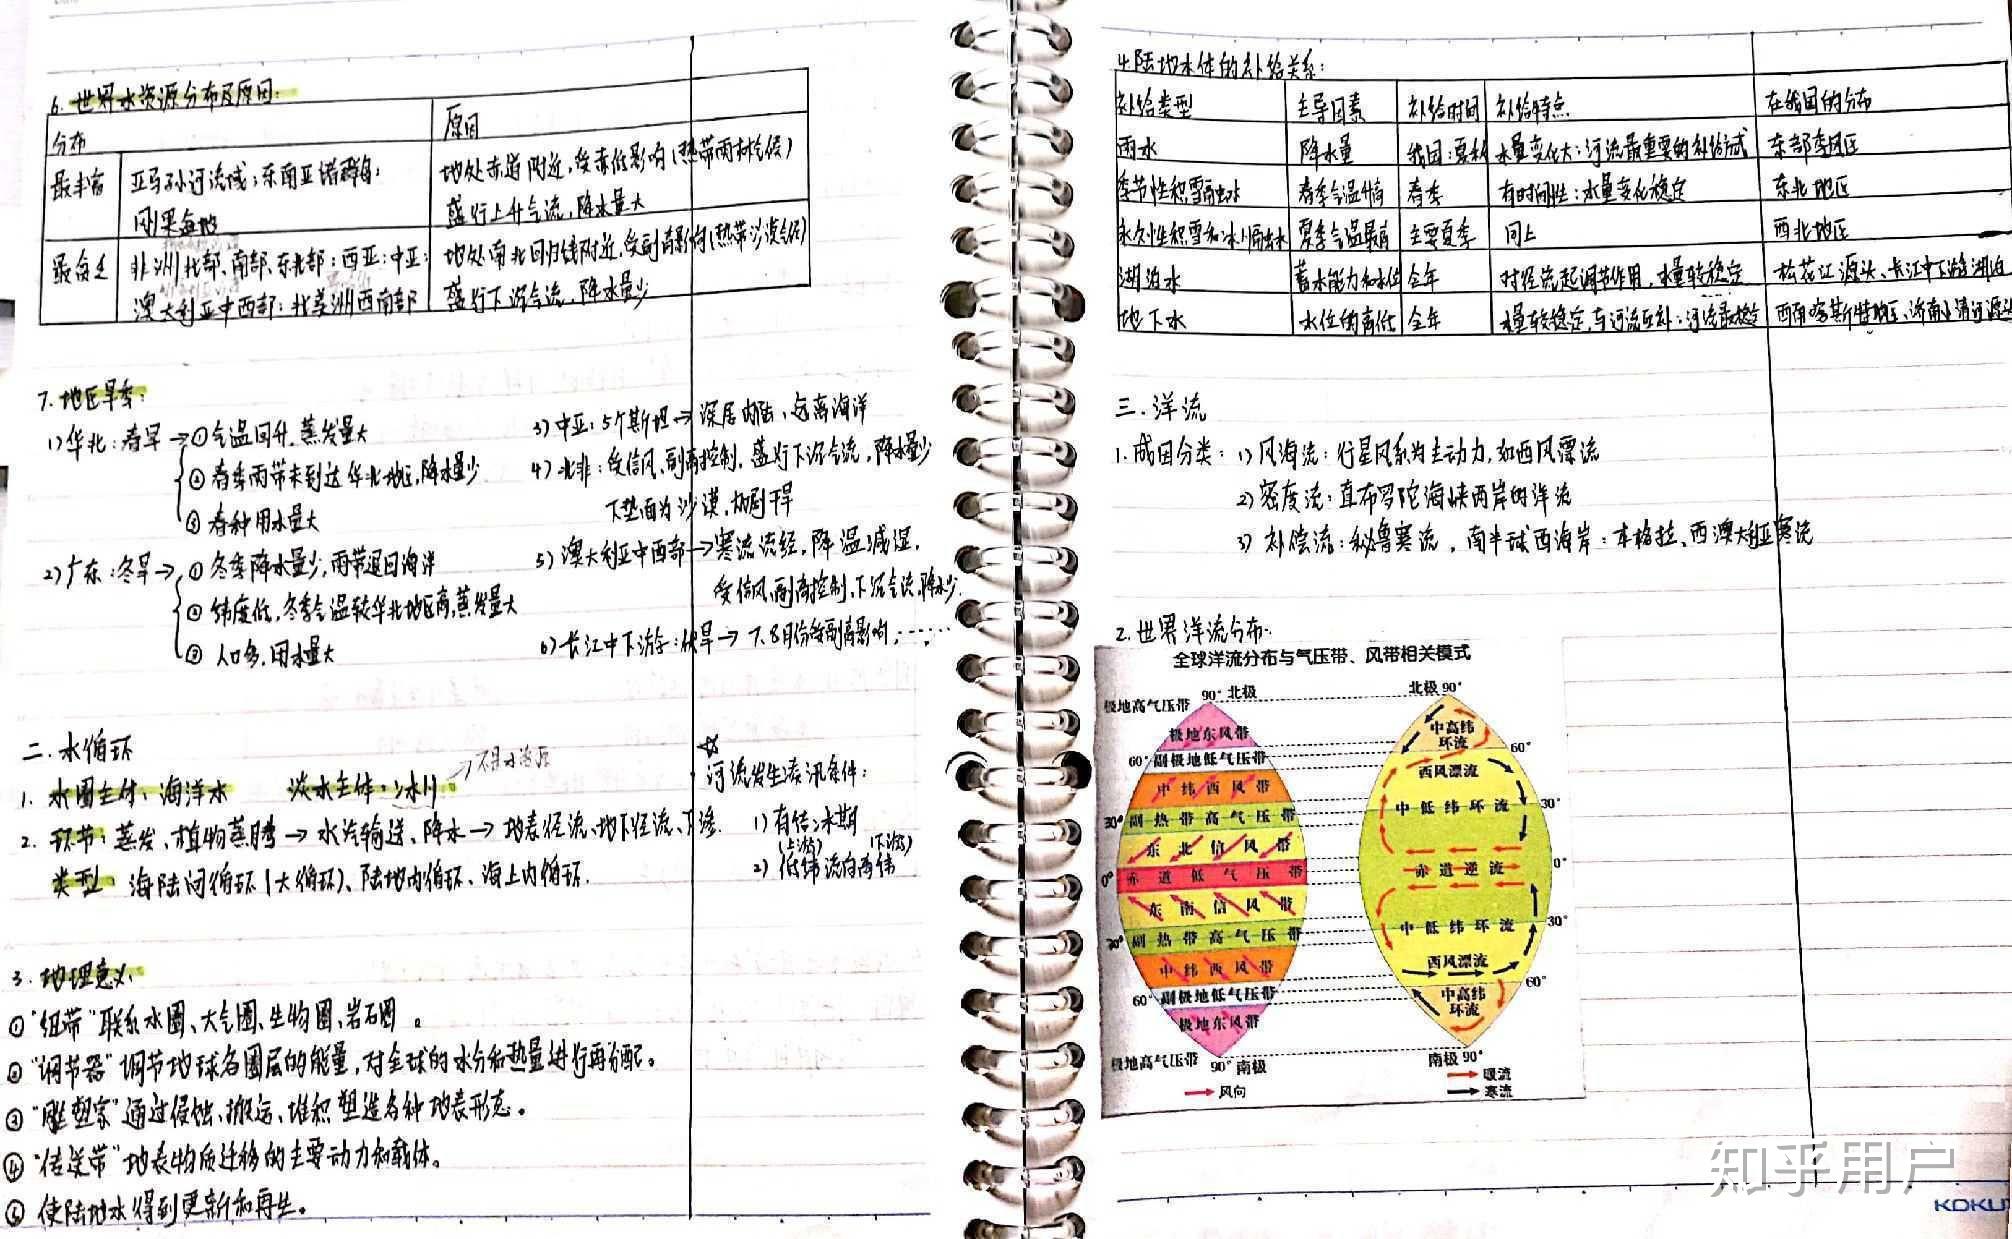 6. 世界水资源分布及原因:
分布 原因
最丰富 亚马孙河流域;东南亚诸群岛; 地处赤道附近,受赤低影响(热带雨林气候)
刚果盆地 盛行上升气流,降水量大
最贫乏 非洲北部、南部、东北部;西亚;中亚; 地处南北回归线附近,受副高影响(热带沙漠气候)
澳大利亚中西部;北美洲西南部 盛行下沉气流,降水量少
7. 地区旱季:
1) 华北:春旱→①气温回升,蒸发量大
②春季雨带未到达华北地区,降水量少
③春种用水量大
2) 广东:冬旱→①冬季降水量少,雨带退回海洋
②纬度低,冬季气温较华北地区高,蒸发量大
③人口多,用水量大
3) 中亚:5个斯坦→深居内陆、远离海洋
4) 北非:受信风、副高控制,盛行下沉气流,降水量少
下垫面为沙漠,加剧干旱
5) 澳大利亚中西部→寒流流经,降温减湿,
受信风、副高控制,下沉气流,降水少.
6) 长江中下游:伏旱→7、8月份受副高影响,……
二. 水循环
1. 水圈主体:海洋水 淡水主体:冰川。
2. 环节:蒸发、植物蒸腾→水汽输送、降水→地表径流、地下径流、下渗.
类型:海陆间循环(大循环)、陆地内循环、海上内循环.
☆
河流发生凌汛条件:
1) 有结冰期
(上游) (下游)
2) 低纬流向高纬
3. 地理意义:
①"纽带"联系水圈、大气圈、生物圈、岩石圈。
②"调节器"调节地球各圈层的能量,对全球的水分和热量进行再分配。
③"雕塑家"通过侵蚀、搬运、堆积塑造各种地表形态。
④"传送带"地表物质迁移的主要动力和载体。
⑤使陆地水得到更新和再生。
4. 陆地水体的补给关系:
补给类型 主导因素 补给时间 补给特点 在我国的分布
雨水 降水量 我国:夏秋 水量变化大;河流最重要的补给方式 东部季风区
季节性积雪融水 春季气温升高 春季 有时间性;水量变化稳定 东北地区
永久性积雪和冰川融水 夏季气温最高 主要夏季 同上 西北地区
湖泊水 蓄水能力和水位 全年 对径流起调节作用,水量较稳定 松花江源头、长江中下游湖泊
地下水 水位的高低 全年 水量较稳定,与河流互补;河流最稳定 西南喀斯特地区、济南小清河源头
三. 洋流
1. 成因分类: 1) 风海流:行星风系为主动力,如西风漂流
2) 密度流:直布罗陀海峡两岸的洋流
3) 补偿流:秘鲁寒流,南半球西海岸:本格拉、西澳大利亚寒流
2. 世界洋流分布:
全球洋流分布与气压带、风带相关模式
90° 北极 北极 90°
极地高气压带
极地东风带 中高纬
环流
60° 副极地低气压带 60°
中纬西风带 西风漂流
30° 副热带高气压带 中低纬环流 30°
东北信风带
0° 赤道低气压带 赤道逆流 0°
东南信风带
30° 副热带高气压带 中低纬环流 30°
中纬西风带 西风漂流
60° 副极地低气压带 60°
极地东风带 中高纬
环流
极地高气压带 90° 南极 南极 90°
风向 暖流
寒流
知乎用户
KOKU